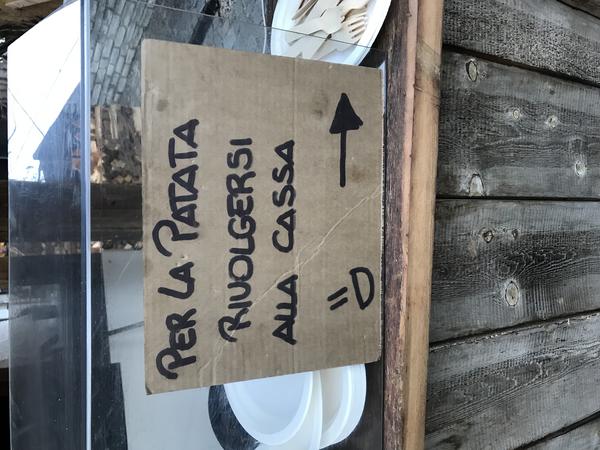 PER LA PATATA
RIVOLGERSI
ALLA CASSA
=D →